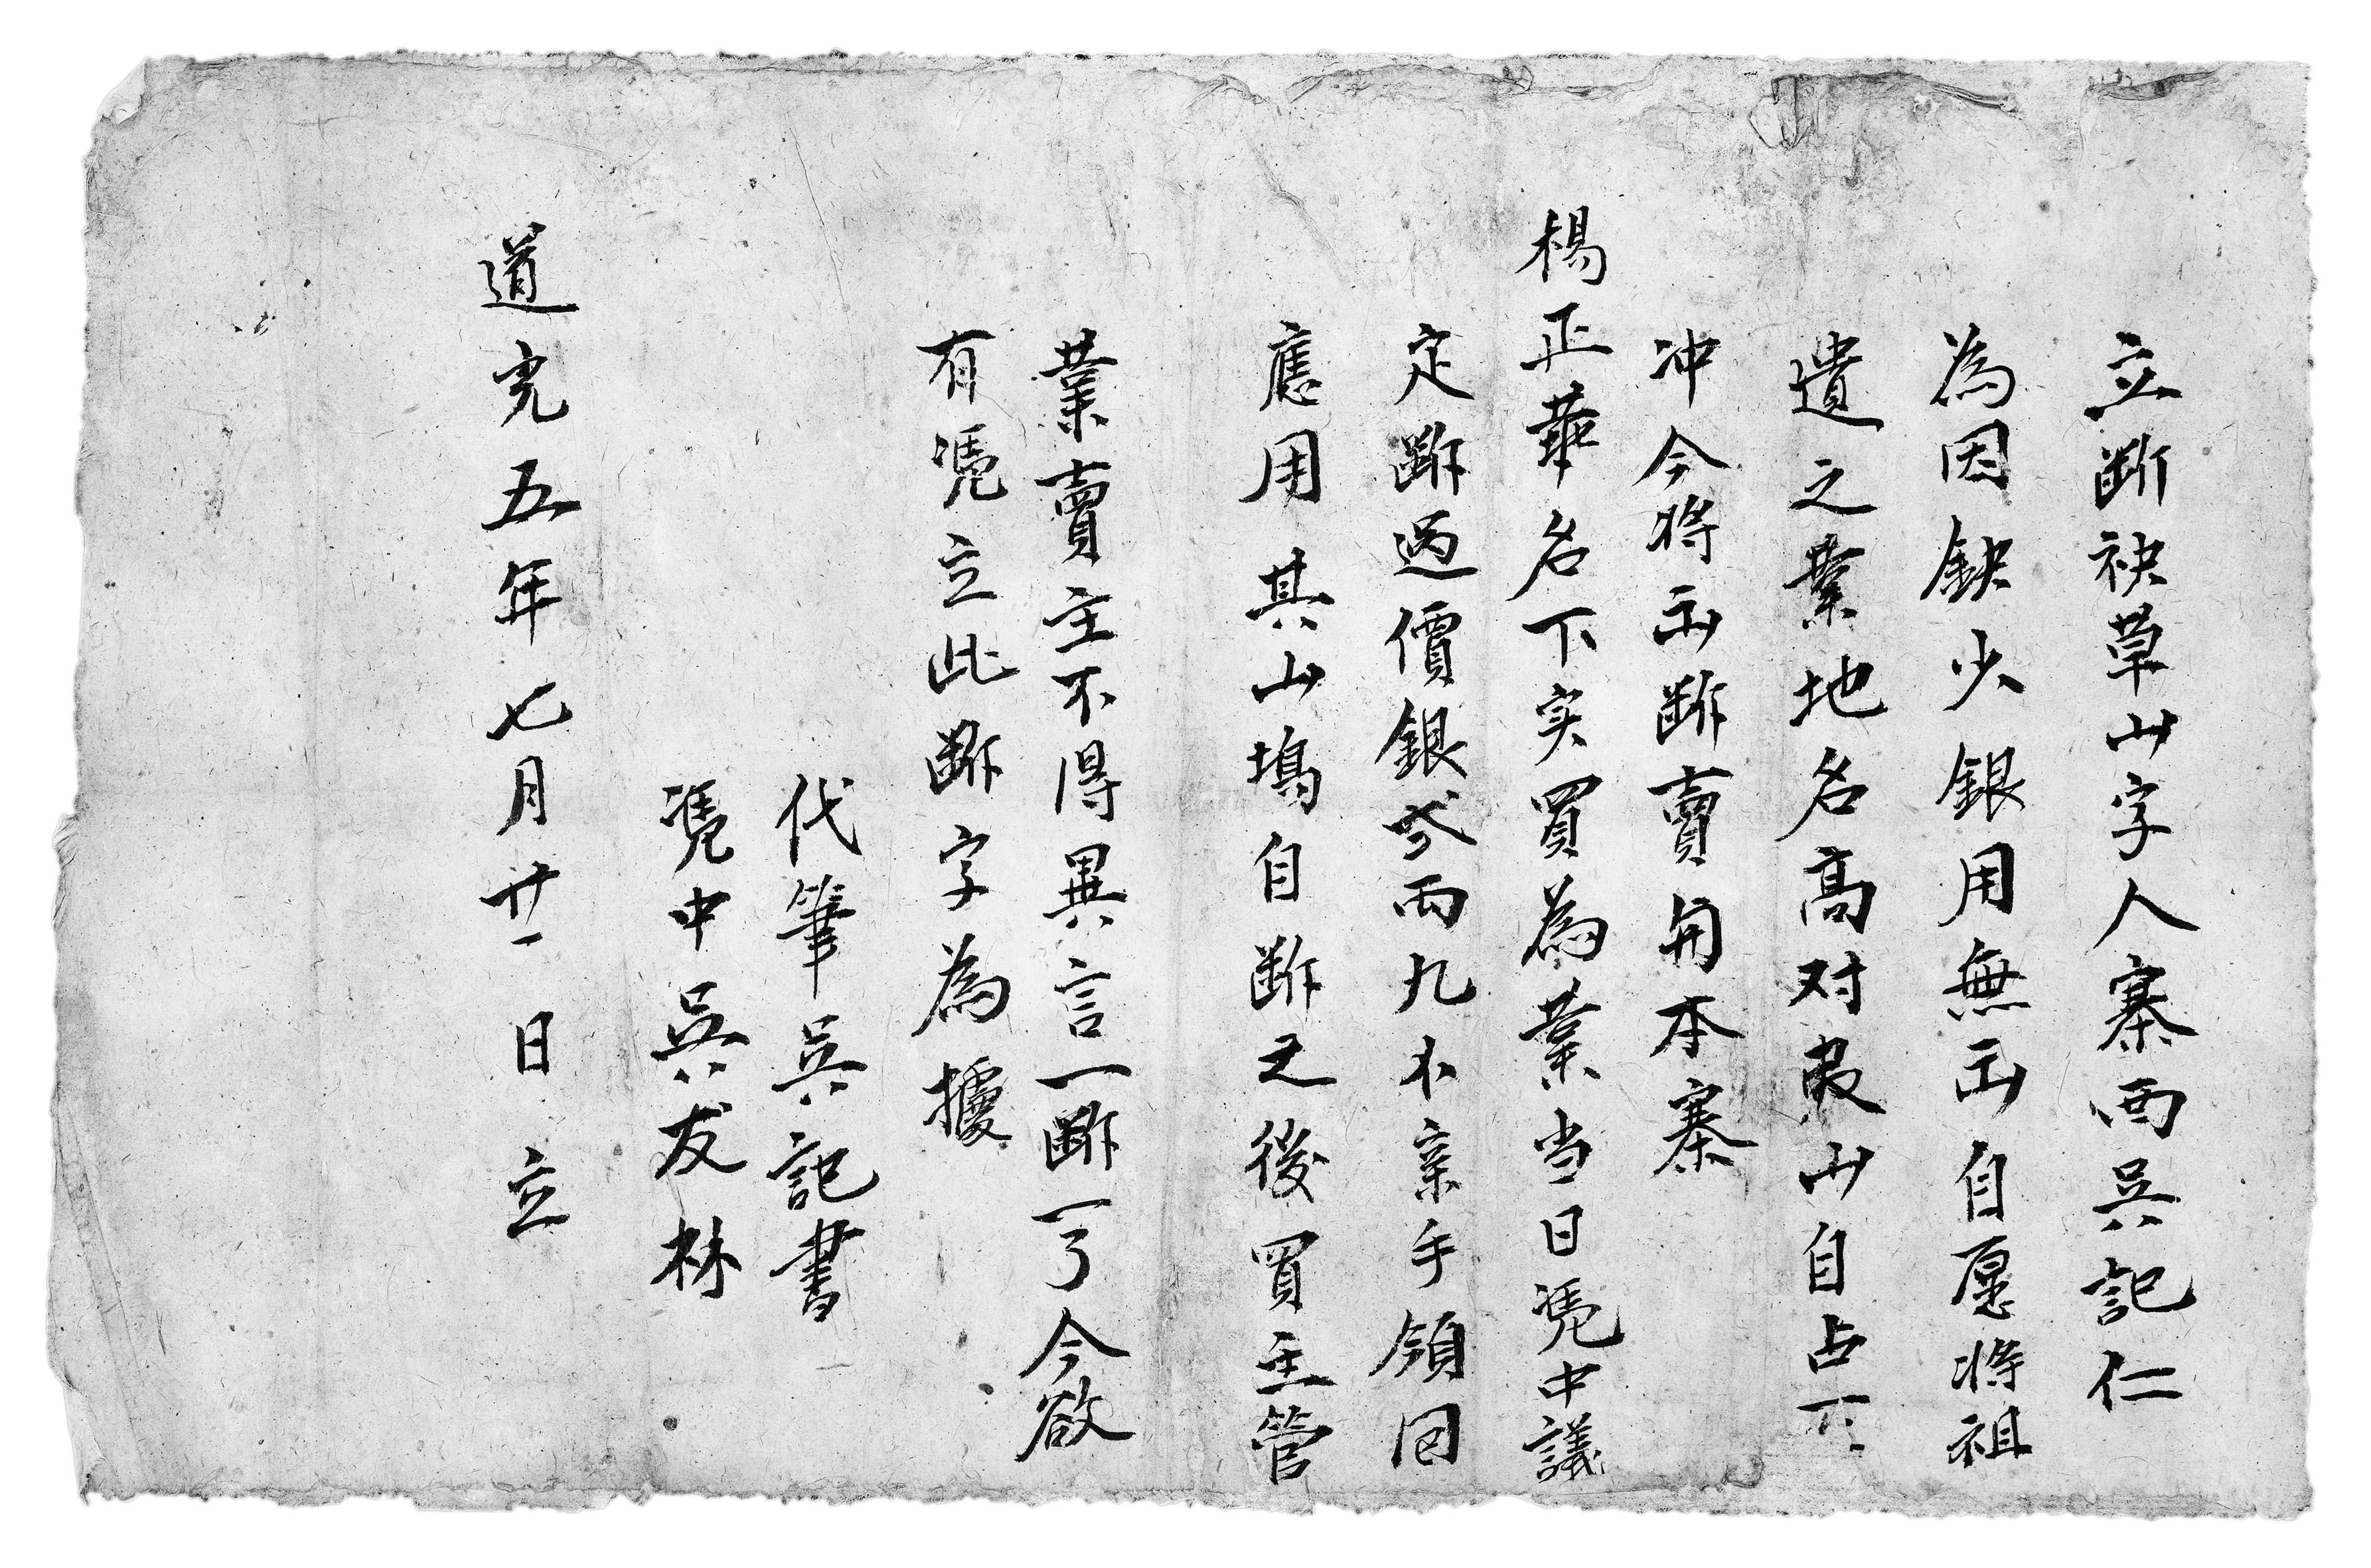 立断袂草山字人寨西吳記仁
為因缺少銀用無出自愿将祖
遺之業地名高对㞋山自占一
冲今将出断賣与本寨
楊正華名下实買為業当日凴中議
定断過價銀叁両九木亲手領回
應用其山塲自断之後買主管
業賣主不得異言一断一了今欲
有凴立此断字為據
代筆吳記書
凴中吳友林
道光五年七月廿一日立